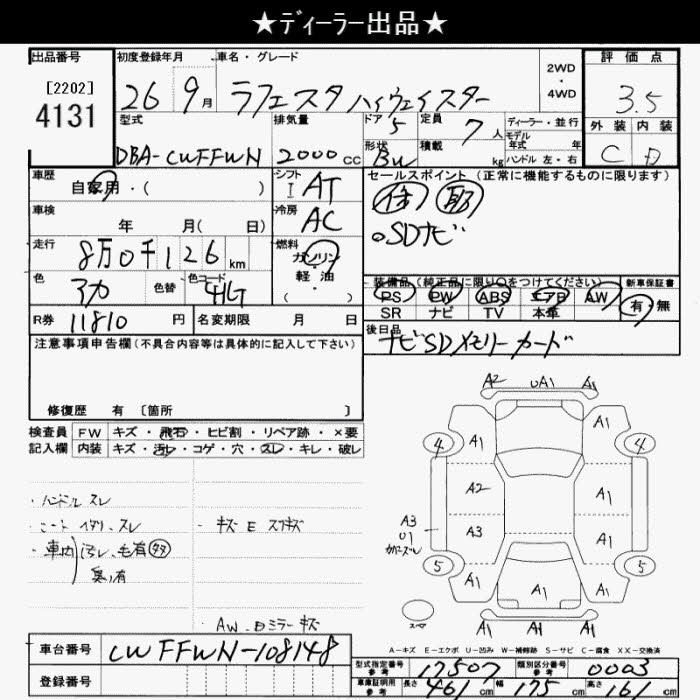 ★ディーラー出品★
出品番号
[2202]
4131
初度登録年月
26 9月
車名・グレード
ラフェスタ ハイウェイスター
2WD
・
4WD
評価点
3.5
外装 内装
C D
型式
DBA-CWFFWN
排気量
2000 CC
ドア 5
形状 BW
定員 7 人
積載 kg
ディーラー・並行
モデル年式 年
ハンドル 左・右
車歴
自家用・( )
シフト
I AT
車検
年 月( 日)
冷房
AC
走行
8万0千126 km
燃料
ガソリン
・
軽油
・
( )
色
色替
色コード
R券 11810 円
名変期限 月 日
セールスポイント(正常に機能するものに限ります)
SDナビ
装備品(純正品に限り○をつけてください)
PS PW ABS エアB AW
SR ナビ TV 本革
新車保証書
有・無
後日品
ナビSDメモリーカード
注意事項申告欄(不具合内容等は具体的に記入して下さい)
修復歴 有 [箇所 ]
検査員 FW キズ・飛石・ヒビ割・リペア跡・×要
記入欄 内装 キズ・汚レ・コゲ・穴・スレ・キレ・破レ
・ハンドル スレ
・シート イタリ、スレ
・車内 汚レ、毛有 多
臭い有
・キズ E スリキズ
・AW、Dミラー キズ
A2 UA1 A1
A1 A1
4 4
A2 A1
A3 A3 A1
U1
5 5
A1 A1 A1
スペア
A1 A1 A1
A-キズ E-エクボ U-凹み W-補修跡 S-サビ C-腐食 XX-交換済
車台番号 CWFFWN-108148
登録番号
型式指定番号 参考 17507
類別区分番号 参考 0003
車庫証明用 参考 長さ 461 cm 幅 175 cm 高さ 161 cm